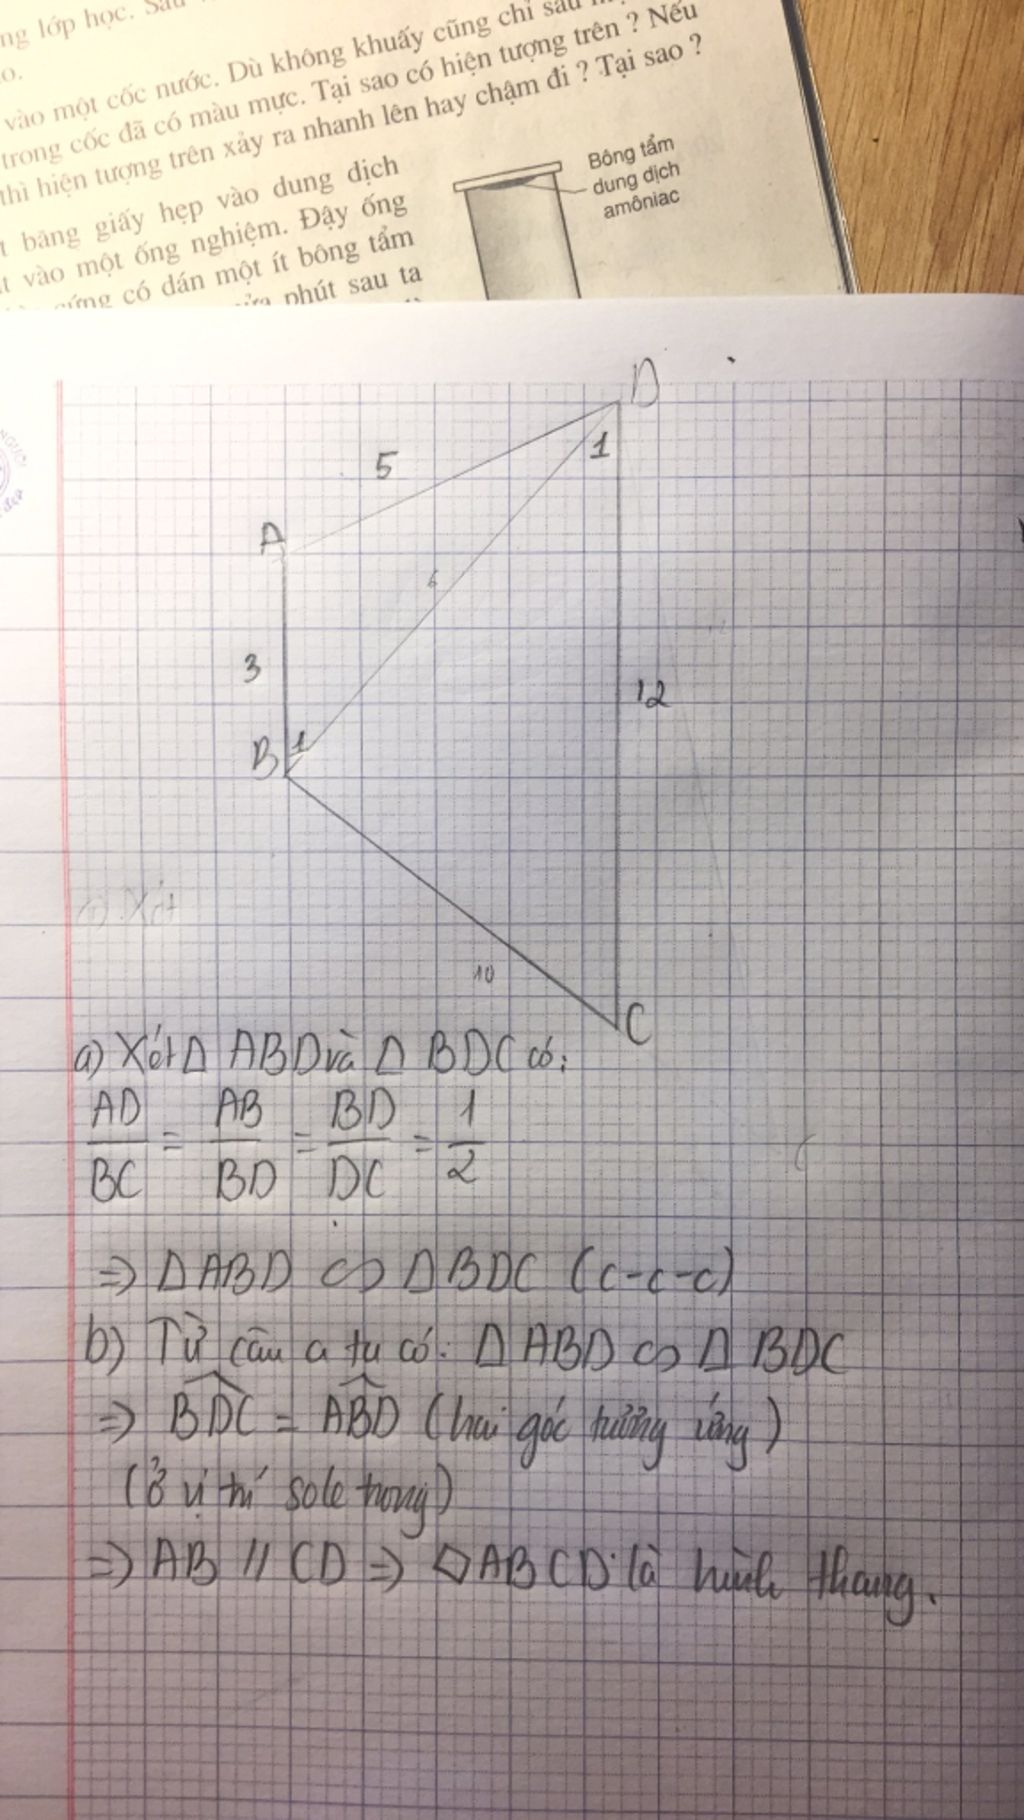 ng lớp học.
o.
vào một cốc nước. Dù không khuấy cũng chỉ sau
trong cốc đã có màu mực. Tại sao có hiện tượng trên ? Nếu
thì hiện tượng trên xảy ra nhanh lên hay chậm đi ? Tại sao ?
băng giấy hẹp vào dung dịch
t vào một ống nghiệm. Đậy ống
cứng có dán một ít bông tẩm
phút sau ta
Bông tẩm
dung dịch
amôniac
D
1
5
A
6
3
12
B 1
10
C
a) Xét
a) Xét Δ ABD và Δ BDC có:
AD/BC = AB/BD = BD/DC = 1/2
=> Δ ABD ∽ Δ BDC (c-c-c)
b) Từ câu a ta có: Δ ABD ∽ Δ BDC
=> BDC = ABD (hai góc tương ứng)
(ở vị trí sole trong)
=> AB // CD => ▱ABCD là hình thang.